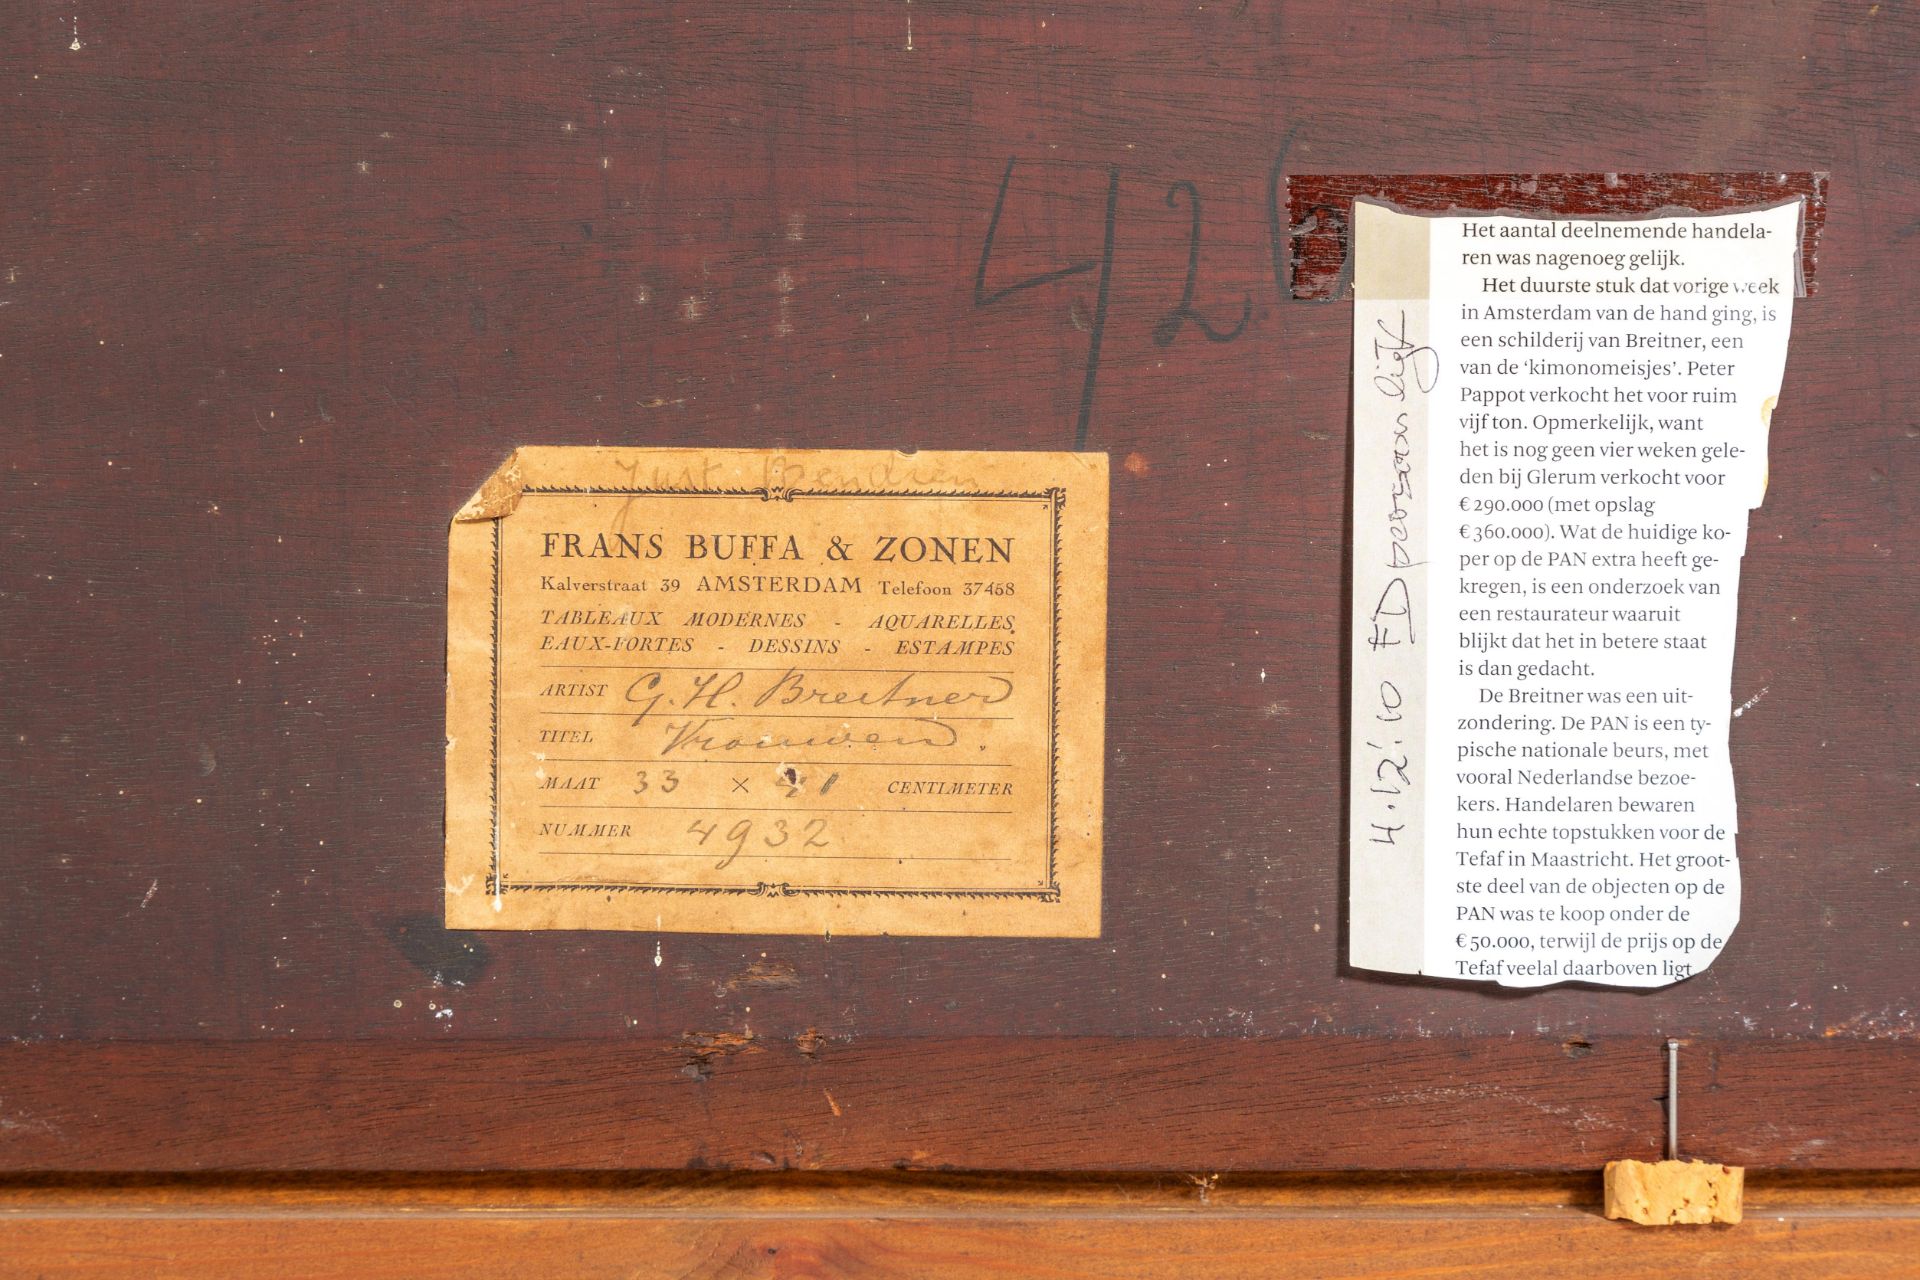 42
Just
FRANS BUFFA & ZONEN
Kalverstraat 39 AMSTERDAM Telefoon 37458
TABLEAUX MODERNES - AQUARELLES
EAUX-FORTES - DESSINS - ESTAMPES
ARTIST G. H. Breitner
TITEL Vrouwen.
MAAT 33 × 41 CENTIMETER
NUMMER 4932
4.12.'10 FD
Het aantal deelnemende handela-
ren was nagenoeg gelijk.
Het duurste stuk dat vorige week
in Amsterdam van de hand ging, is
een schilderij van Breitner, een
van de ‘kimonomeisjes’. Peter
Pappot verkocht het voor ruim
vijf ton. Opmerkelijk, want
het is nog geen vier weken gele-
den bij Glerum verkocht voor
€ 290.000 (met opslag
€ 360.000). Wat de huidige ko-
per op de PAN extra heeft ge-
kregen, is een onderzoek van
een restaurateur waaruit
blijkt dat het in betere staat
is dan gedacht.
De Breitner was een uit-
zondering. De PAN is een ty-
pische nationale beurs, met
vooral Nederlandse bezoe-
kers. Handelaren bewaren
hun echte topstukken voor de
Tefaf in Maastricht. Het groot-
ste deel van de objecten op de
PAN was te koop onder de
€ 50.000, terwijl de prijs op de
Tefaf veelal daarboven ligt